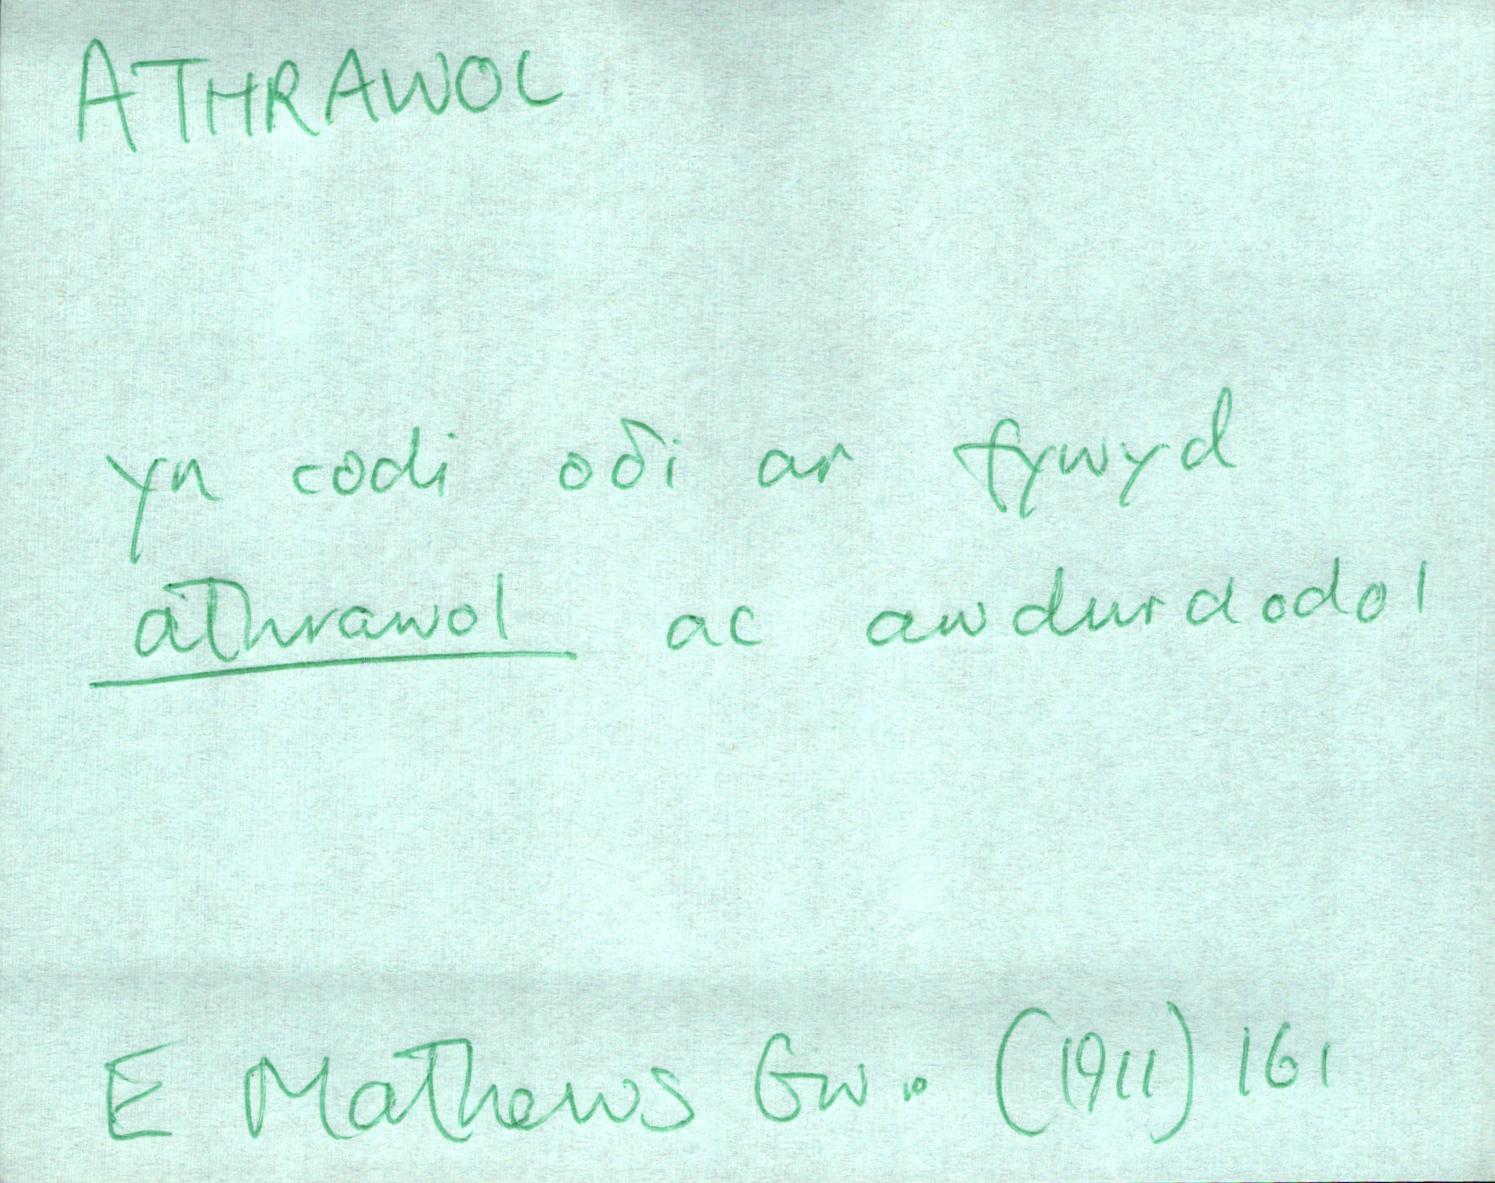 ATHRAWOL
yn codi oδi ar fywyd
athrawol ac awdurdodol
E Mathews Gw. (1911) 161